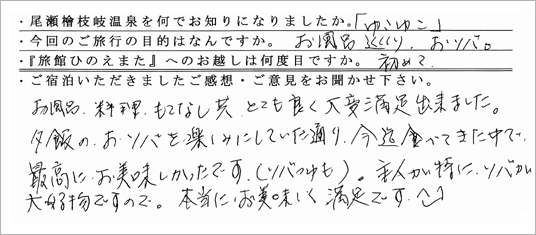 ・尾瀬檜枝岐温泉を何でお知りになりましたか。「ゆこゆこ」
・今回のご旅行の目的はなんですか。 お風呂めぐり、おソバ。
・『旅館ひのえまた』へのお越しは何度目ですか。 初めて
・ご宿泊いただきましたご感想・ご意見をお聞かせ下さい。
お風呂、料理、もてなし共、とても良く大変満足出来ました。
夕飯の、おソバを楽しみにしていた通り、今迄食べてきた中で、
最高に、お美味しかったです。(ソバつゆも)。主人が特に、ソバが
大好物ですので。本当に、お美味しく満足です。